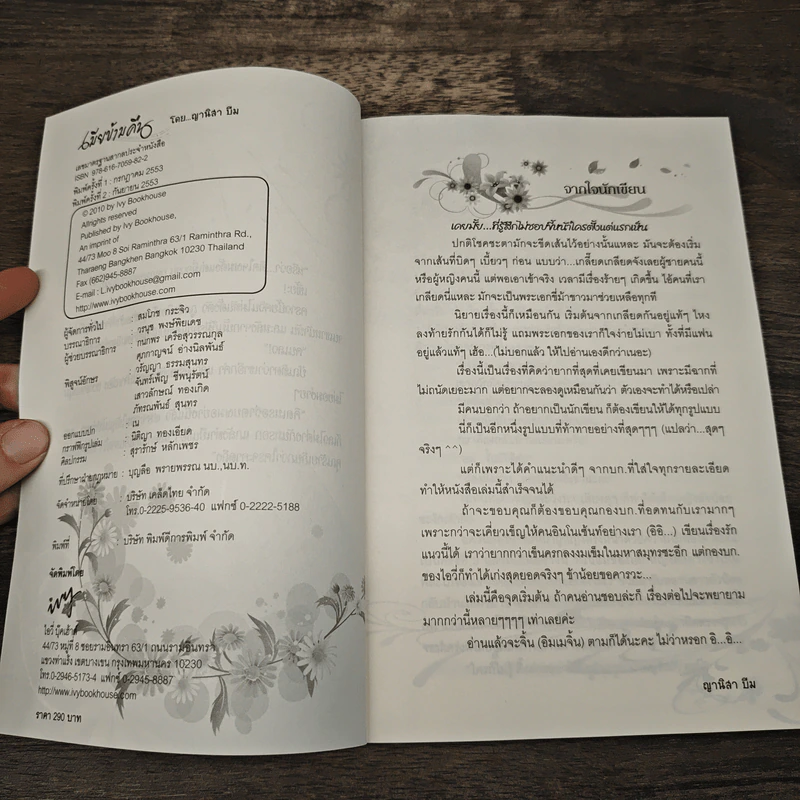 เมียข้ามคืน
โดย...ญานิสา บีม
เลขมาตรฐานสากลประจำหนังสือ
ISBN 978-616-7059-82-2
พิมพ์ครั้งที่ 1 : กรกฎาคม 2553
พิมพ์ครั้งที่ 2 : กันยายน 2553
© 2010 by Ivy Bookhouse
Allrights reserved
Published by Ivy Bookhouse,
An imprint of
44/73 Moo 8 Soi Raminthra 63/1 Raminthra Rd.,
Tharaeng Bangkhen Bangkok 10230 Thailand
Fax (662)945-8887
E-mail : L.ivybookhouse@gmail.com
http://www.ivybookhouse.com
ผู้จัดการทั่วไป : สมโภช กระจิว
บรรณาธิการ : วรนุช พงษ์พิยเดช
ผู้ช่วยบรรณาธิการ : กนกพร เครือสุวรรณกุล
ศุภกาญจน์ อ่างนิลพันธ์
พิสูจน์อักษร : วรัญญา ธรรมสุนทร
จันทร์เพ็ญ ชีพนุรัตน์
เสาวลักษณ์ ทองเกิด
ภัทรณพันธ์ สุนทร
ออกแบบปก : เน
กราฟฟิกรูปเล่ม : นิติญา ทองเอียด
ศิลปกรรม : สุรารักษ์ หลักเพชร
ที่ปรึกษาฝ่ายกฎหมาย : บุญลือ พรายพรรณ นบ.,นบ.ท.
จัดจำหน่ายโดย : บริษัท เคล็ดไทย จำกัด
โทร.0-2225-9536-40 แฟกซ์ 0-2222-5188
พิมพ์ที่ : บริษัท พิมพ์ดีการพิมพ์ จำกัด
จัดพิมพ์โดย
ivy
ไอวี่ บุ๊คเฮ้าส์
44/73 หมู่ที่ 8 ซอยรามอินทรา 63/1 ถนนรามอินทรา
แขวงท่าแร้ง เขตบางเขน กรุงเทพมหานคร 10230
โทร.0-2946-5173-4 แฟกซ์ 0-2945-8887
http://www.ivybookhouse.com
ราคา 290 บาท
จากใจนักเขียน
เคยมั้ย...ที่รู้สึกไม่ชอบขี้หน้าใครตั้งแต่แรกเห็น
ปกติโชคชะตามักจะขีดเส้นไว้อย่างนั้นแหละ มันจะต้องเริ่ม
จากเส้นที่บิดๆ เบี้ยวๆ ก่อน แบบว่า...เกลี๊ยดเกลียดจังเลยผู้ชายคนนี้
หรือผู้หญิงคนนี้ แต่พอเอาเข้าจริง เวลามีเรื่องร้ายๆ เกิดขึ้น ไอ้คนที่เรา
เกลียดนี่แหละ มักจะเป็นพระเอกขี่ม้าขาวมาช่วยเหลือทุกที
นิยายเรื่องนี้ก็เหมือนกัน เริ่มต้นจากเกลียดกันอยู่แท้ๆ ไหง
ลงท้ายรักกันได้ก็ไม่รู้ แถมพระเอกของเราก็ใจง่ายไม่เบา ทั้งที่มีแฟน
อยู่แล้วแท้ๆ เฮ้อ...(ไม่บอกแล้ว ให้ไปอ่านเองดีกว่าเนอะ)
เรื่องนี้เป็นเรื่องที่คิดว่ายากที่สุดที่เคยเขียนมา เพราะมีฉากที่
ไม่ถนัดเยอะมาก แต่อยากจะลองดูเหมือนกันว่า ตัวเองจะทำได้หรือเปล่า
มีคนบอกว่า ถ้าอยากเป็นนักเขียน ก็ต้องเขียนให้ได้ทุกรูปแบบ
นี่ก็เป็นอีกหนึ่งรูปแบบที่ท้าทายอย่างที่สุดๆๆๆ (แปลว่า...สุดๆ
จริงๆ ^^)
แต่ก็เพราะได้คำแนะนำดีๆ จากบก.ที่ใส่ใจทุกรายละเอียด
ทำให้หนังสือเล่มนี้สำเร็จจนได้
ถ้าจะขอบคุณก็ต้องขอบคุณกองบก.ที่อดทนกับเรามากๆ
เพราะกว่าจะเคี่ยวเข็ญให้คนอินโนเซ้นท์อย่างเรา (อิอิ...) เขียนเรื่องรัก
แนวนี้ได้ เราว่ายากกว่าเข็นครกลงงมเข็มในมหาสมุทรซะอีก แต่กองบก.
ของไอวี่ก็ทำได้เก่งสุดยอดจริงๆ ข้าน้อยขอคารวะ...
เล่มนี้คือจุดเริ่มต้น ถ้าคนอ่านชอบล่ะก็ เรื่องต่อไปจะพยายาม
มากกว่านี้หลายๆๆๆๆ เท่าเลยค่ะ
อ่านแล้วจะจิ้น (อิมเมจิ้น) ตามก็ได้นะคะ ไม่ว่าหรอก อิ...อิ...
ญานิสา บีม